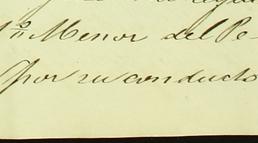 1º Menor del Pe-
por su conducto